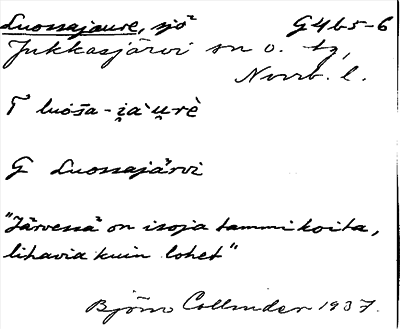 Luossajaure, sjö
G4b5-6
Jukkasjärvi sn o. tg,
Norrb. l.
T luossa-i̯a`u̯rè
G Luossajärvi
"Järvessä on isoja tammikoita,
lihavia kuin lohet"
Björn Collinder 1937.